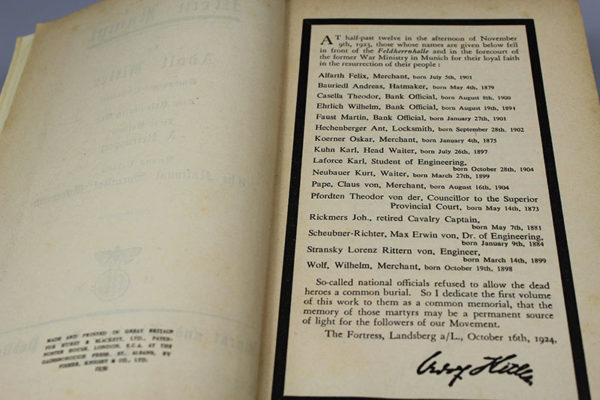 MADE AND PRINTED IN GREAT BRITAIN
FOR HURST & BLACKETT, LTD., PATER-
NOSTER HOUSE, LONDON, E.C.4, AT THE
GAINSBOROUGH PRESS, ST. ALBANS, BY
FISHER, KNIGHT & CO., LTD.
AT half-past twelve in the afternoon of November
9th, 1923, those whose names are given below fell
in front of the Feldherrnhalle and in the forecourt of
the former War Ministry in Munich for their loyal faith
in the resurrection of their people:
Alfarth Felix, Merchant, born July 5th, 1901
Bauriedl Andreas, Hatmaker, born May 4th, 1879
Casella Theodor, Bank Official, born August 8th, 1900
Ehrlich Wilhelm, Bank Official, born August 19th, 1894
Faust Martin, Bank Official, born January 27th, 1901
Hechenberger Ant, Locksmith, born September 28th, 1902
Koerner Oskar, Merchant, born January 4th, 1875
Kuhn Karl, Head Waiter, born July 26th, 1897
Laforce Karl, Student of Engineering,
born October 28th, 1904
Neubauer Kurt, Waiter, born March 27th, 1899
Pape, Claus von, Merchant, born August 16th, 1904
Pfordten Theodor von der, Councillor to the Superior
Provincial Court, born May 14th, 1873
Rickmers Joh., retired Cavalry Captain,
born May 7th, 1881
Scheubner-Richter, Max Erwin von, Dr. of Engineering,
born January 9th, 1884
Stransky Lorenz Rittern von, Engineer,
born March 14th, 1899
Wolf, Wilhelm, Merchant, born October 19th, 1898
So-called national officials refused to allow the dead
heroes a common burial. So I dedicate the first volume
of this work to them as a common memorial, that the
memory of those martyrs may be a permanent source
of light for the followers of our Movement.
The Fortress, Landsberg a/L., October 16th, 1924.
Adolf Hitler